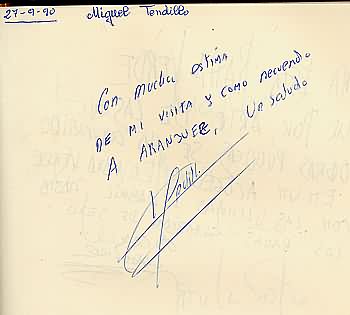 27-9-90 Miguel Tendillo
Con mucha estima
DE mi visita y como recuerdo
A ARANJUEZ, Un saludo